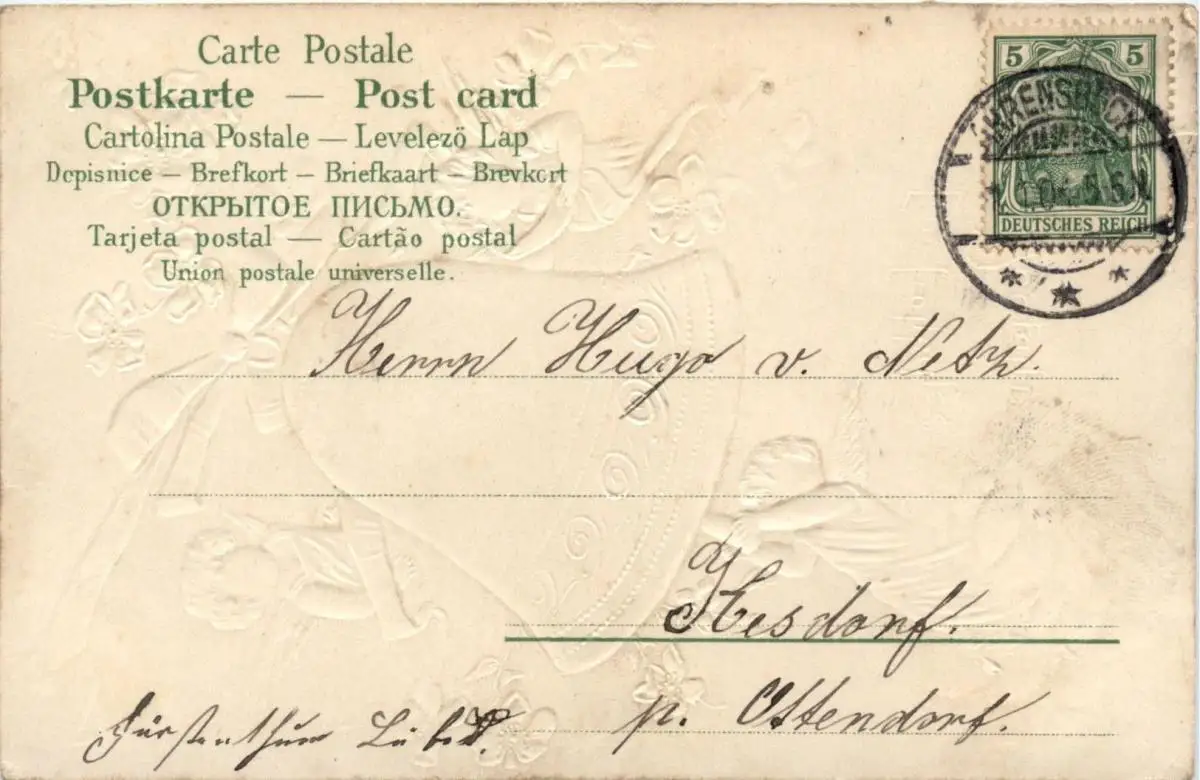 Carte Postale
Postkarte — Post card
Cartolina Postale — Levelező Lap
Dopisnice — Brefkort — Briefkaart — Brevkort
ОТКРЫТОЕ ПИСЬМО.
Tarjeta postal — Cartão postal
Union postale universelle.
5 5
AHRENSBÖCK
DEUTSCHES REICH
Herrn Hugo v. Netz.
Hesdorf.
p. Ottendorf.
Fürstenthum Lübeck.